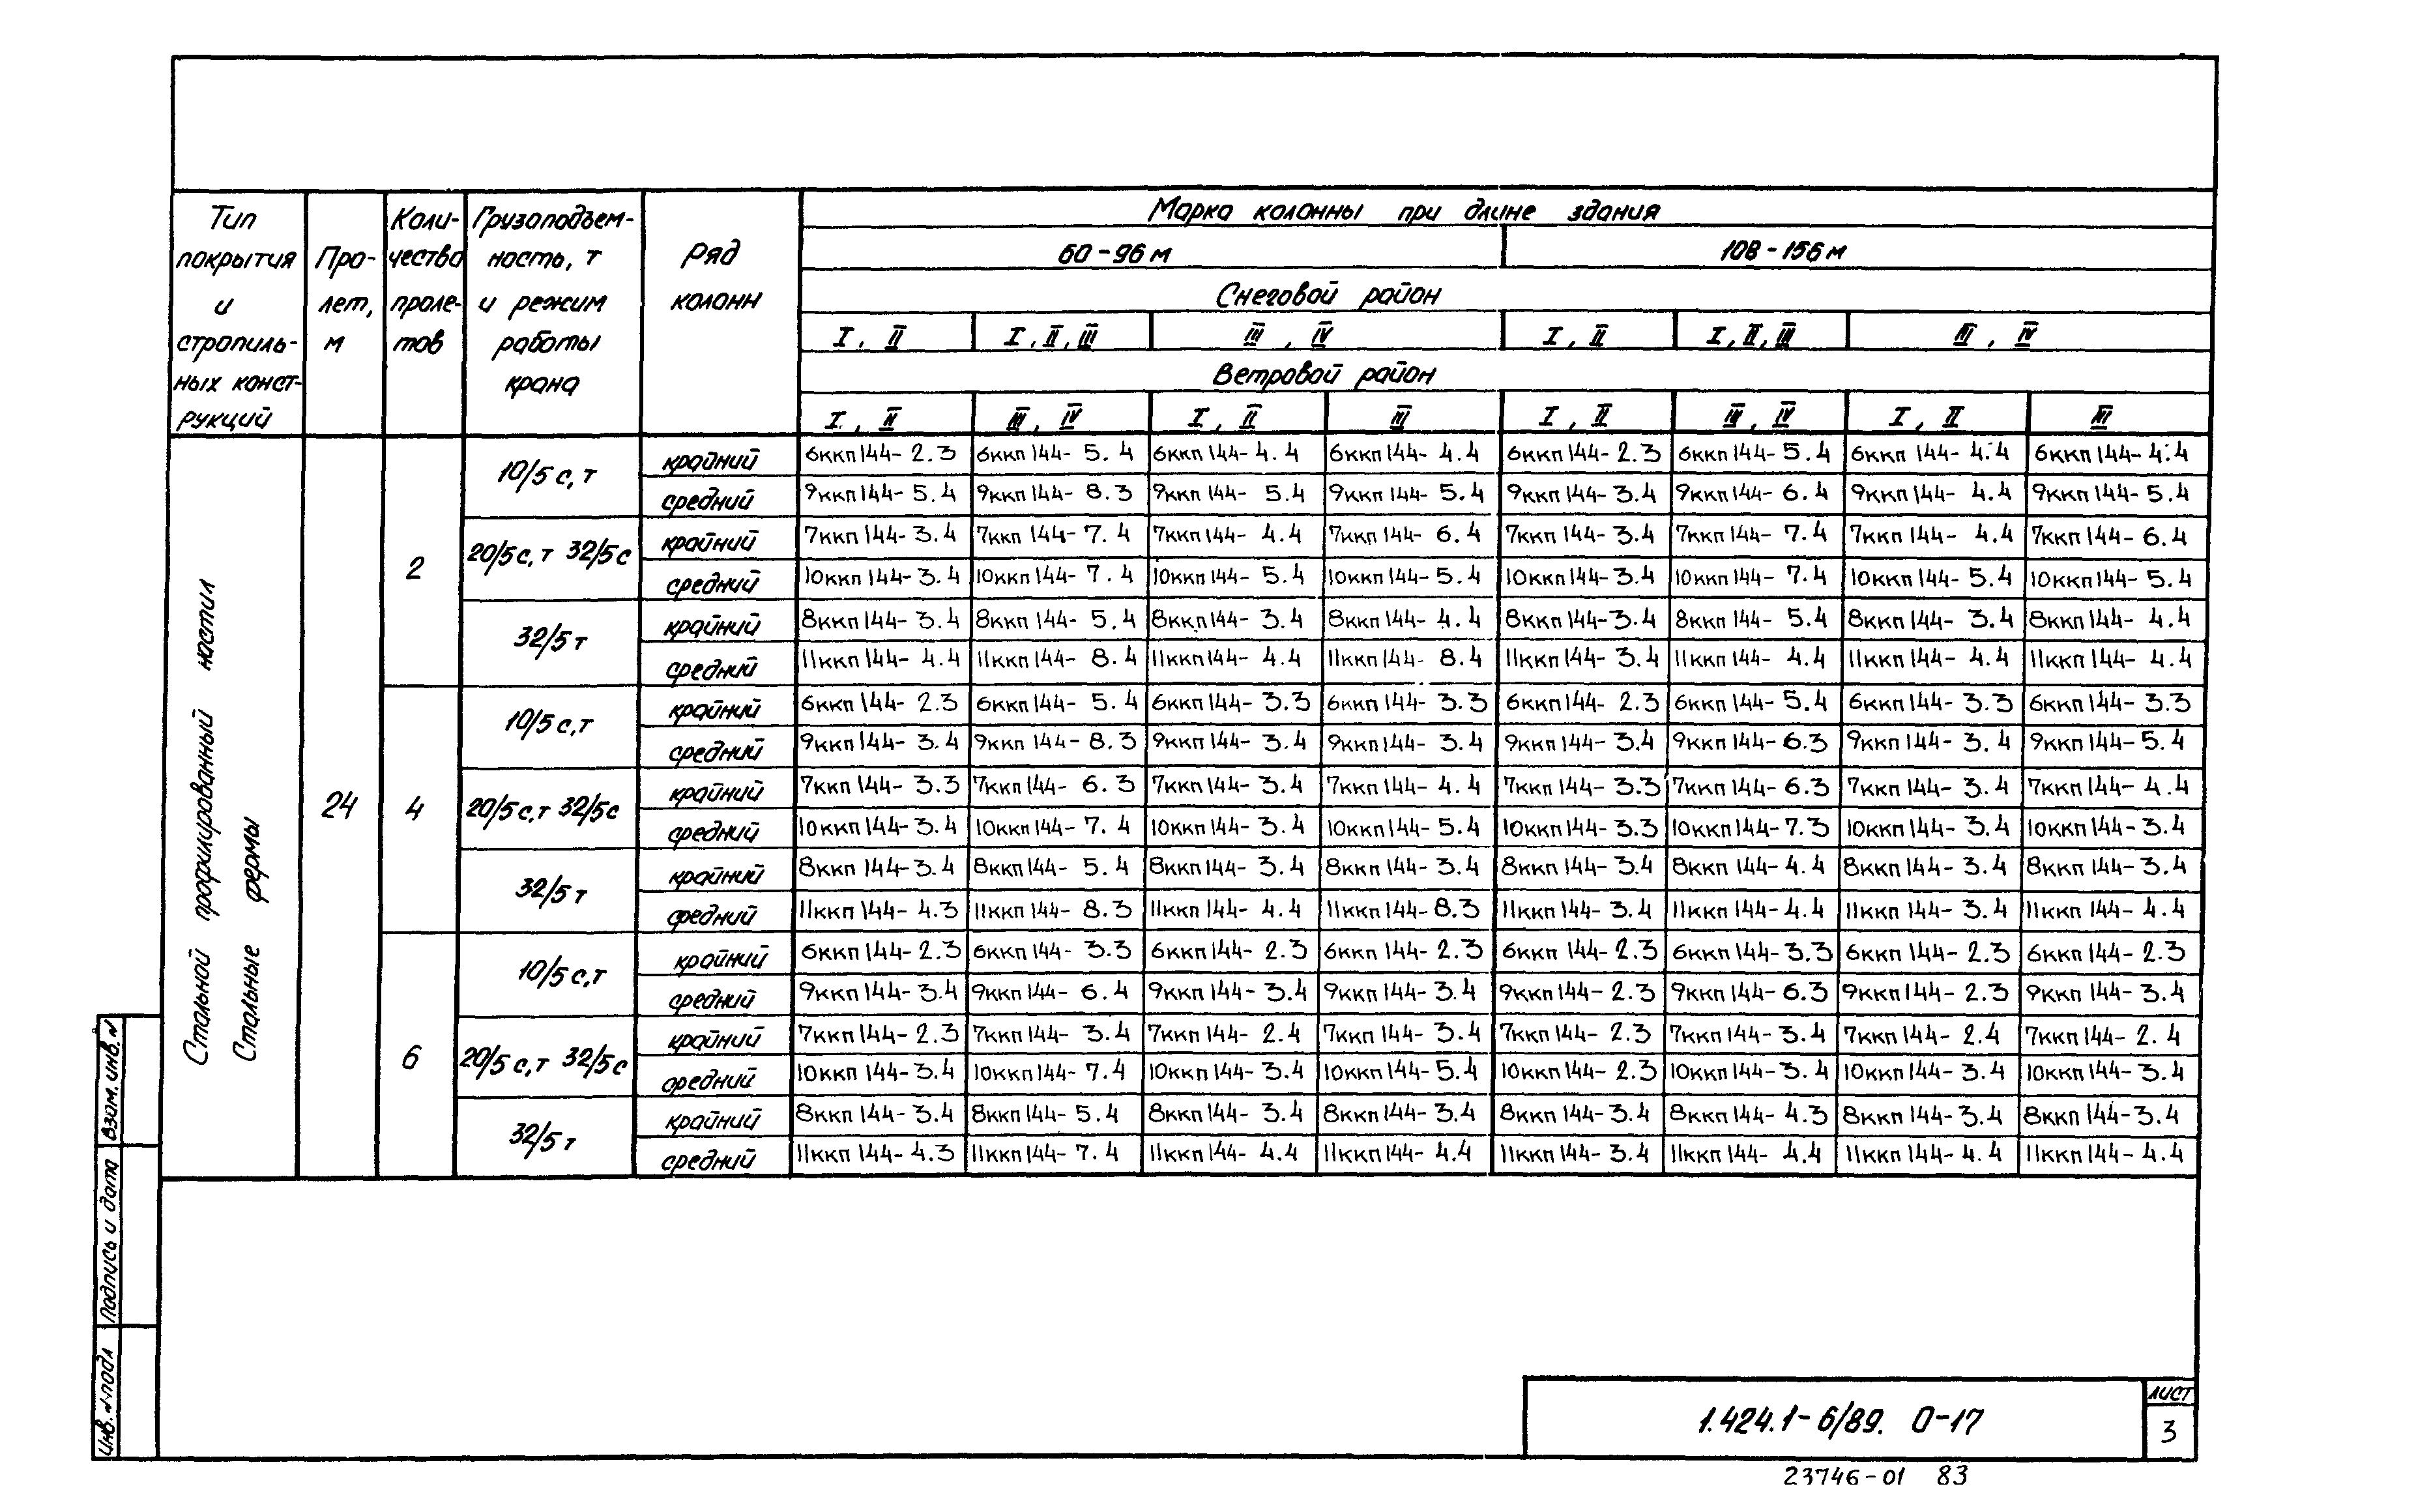 Тип покрытия и стропиль- ных конст- рукций
Про- лет, м
Коли- чество проле- тов
Грузоподъем- ность, т и режим работы крана
Ряд колонн
Марка колонны при длине здания
60-96 м 108-156 м
Снеговой район
I, II I, II, III III, IV I, II I, II, III III, IV
Ветровой район
I, II III, IV I, II III I, II III, IV I, II III
Стальной профилированный настил
Стальные фермы
24
2
10/5 с, т
крайний 6ккп144-2.3 6ккп144-5.4 6ккп144-4.4 6ккп144-4.4 6ккп144-2.3 6ккп144-5.4 6ккп144-4.4 6ккп144-4.4
средний 9ккп144-5.4 9ккп144-8.3 9ккп144-5.4 9ккп144-5.4 9ккп144-3.4 9ккп144-6.4 9ккп144-4.4 9ккп144-5.4
20/5 с, т 32/5 с
крайний 7ккп144-3.4 7ккп144-7.4 7ккп144-4.4 7ккп144-6.4 7ккп144-3.4 7ккп144-7.4 7ккп144-4.4 7ккп144-6.4
средний 10ккп144-3.4 10ккп144-7.4 10ккп144-5.4 10ккп144-5.4 10ккп144-3.4 10ккп144-7.4 10ккп144-5.4 10ккп144-5.4
32/5 т
крайний 8ккп144-3.4 8ккп144-5.4 8ккп144-3.4 8ккп144-4.4 8ккп144-3.4 8ккп144-5.4 8ккп144-3.4 8ккп144-4.4
средний 11ккп144-4.4 11ккп144-8.4 11ккп144-4.4 11ккп144-8.4 11ккп144-3.4 11ккп144-4.4 11ккп144-4.4 11ккп144-4.4
4
10/5 с, т
крайний 6ккп144-2.3 6ккп144-5.4 6ккп144-3.3 6ккп144-3.3 6ккп144-2.3 6ккп144-5.4 6ккп144-3.3 6ккп144-3.3
средний 9ккп144-3.4 9ккп144-8.3 9ккп144-3.4 9ккп144-3.4 9ккп144-3.4 9ккп144-6.3 9ккп144-3.4 9ккп144-5.4
20/5 с, т 32/5 с
крайний 7ккп144-3.3 7ккп144-6.3 7ккп144-3.4 7ккп144-4.4 7ккп144-3.3 7ккп144-6.3 7ккп144-3.4 7ккп144-4.4
средний 10ккп144-3.4 10ккп144-7.4 10ккп144-3.4 10ккп144-5.4 10ккп144-3.3 10ккп144-7.3 10ккп144-3.4 10ккп144-3.4
32/5 т
крайний 8ккп144-3.4 8ккп144-5.4 8ккп144-3.4 8ккп144-3.4 8ккп144-3.4 8ккп144-4.4 8ккп144-3.4 8ккп144-3.4
средний 11ккп144-4.3 11ккп144-8.3 11ккп144-4.4 11ккп144-8.3 11ккп144-3.4 11ккп144-4.4 11ккп144-3.4 11ккп144-4.4
6
10/5 с, т
крайний 6ккп144-2.3 6ккп144-3.3 6ккп144-2.3 6ккп144-2.3 6ккп144-2.3 6ккп144-3.3 6ккп144-2.3 6ккп144-2.3
средний 9ккп144-3.4 9ккп144-6.4 9ккп144-3.4 9ккп144-3.4 9ккп144-2.3 9ккп144-6.3 9ккп144-2.3 9ккп144-3.4
20/5 с, т 32/5 с
крайний 7ккп144-2.3 7ккп144-3.4 7ккп144-2.4 7ккп144-3.4 7ккп144-2.3 7ккп144-3.4 7ккп144-2.4 7ккп144-2.4
средний 10ккп144-3.4 10ккп144-7.4 10ккп144-3.4 10ккп144-5.4 10ккп144-2.3 10ккп144-3.4 10ккп144-3.4 10ккп144-3.4
32/5 т
крайний 8ккп144-3.4 8ккп144-5.4 8ккп144-3.4 8ккп144-3.4 8ккп144-3.4 8ккп144-4.3 8ккп144-3.4 8ккп144-3.4
средний 11ккп144-4.3 11ккп144-7.4 11ккп144-4.4 11ккп144-4.4 11ккп144-3.4 11ккп144-4.4 11ккп144-4.4 11ккп144-4.4
Взам. инв. N
Подпись и дата
Инв. N подл
1.424.1-6/89. 0-17
лист
3
23746-01 83